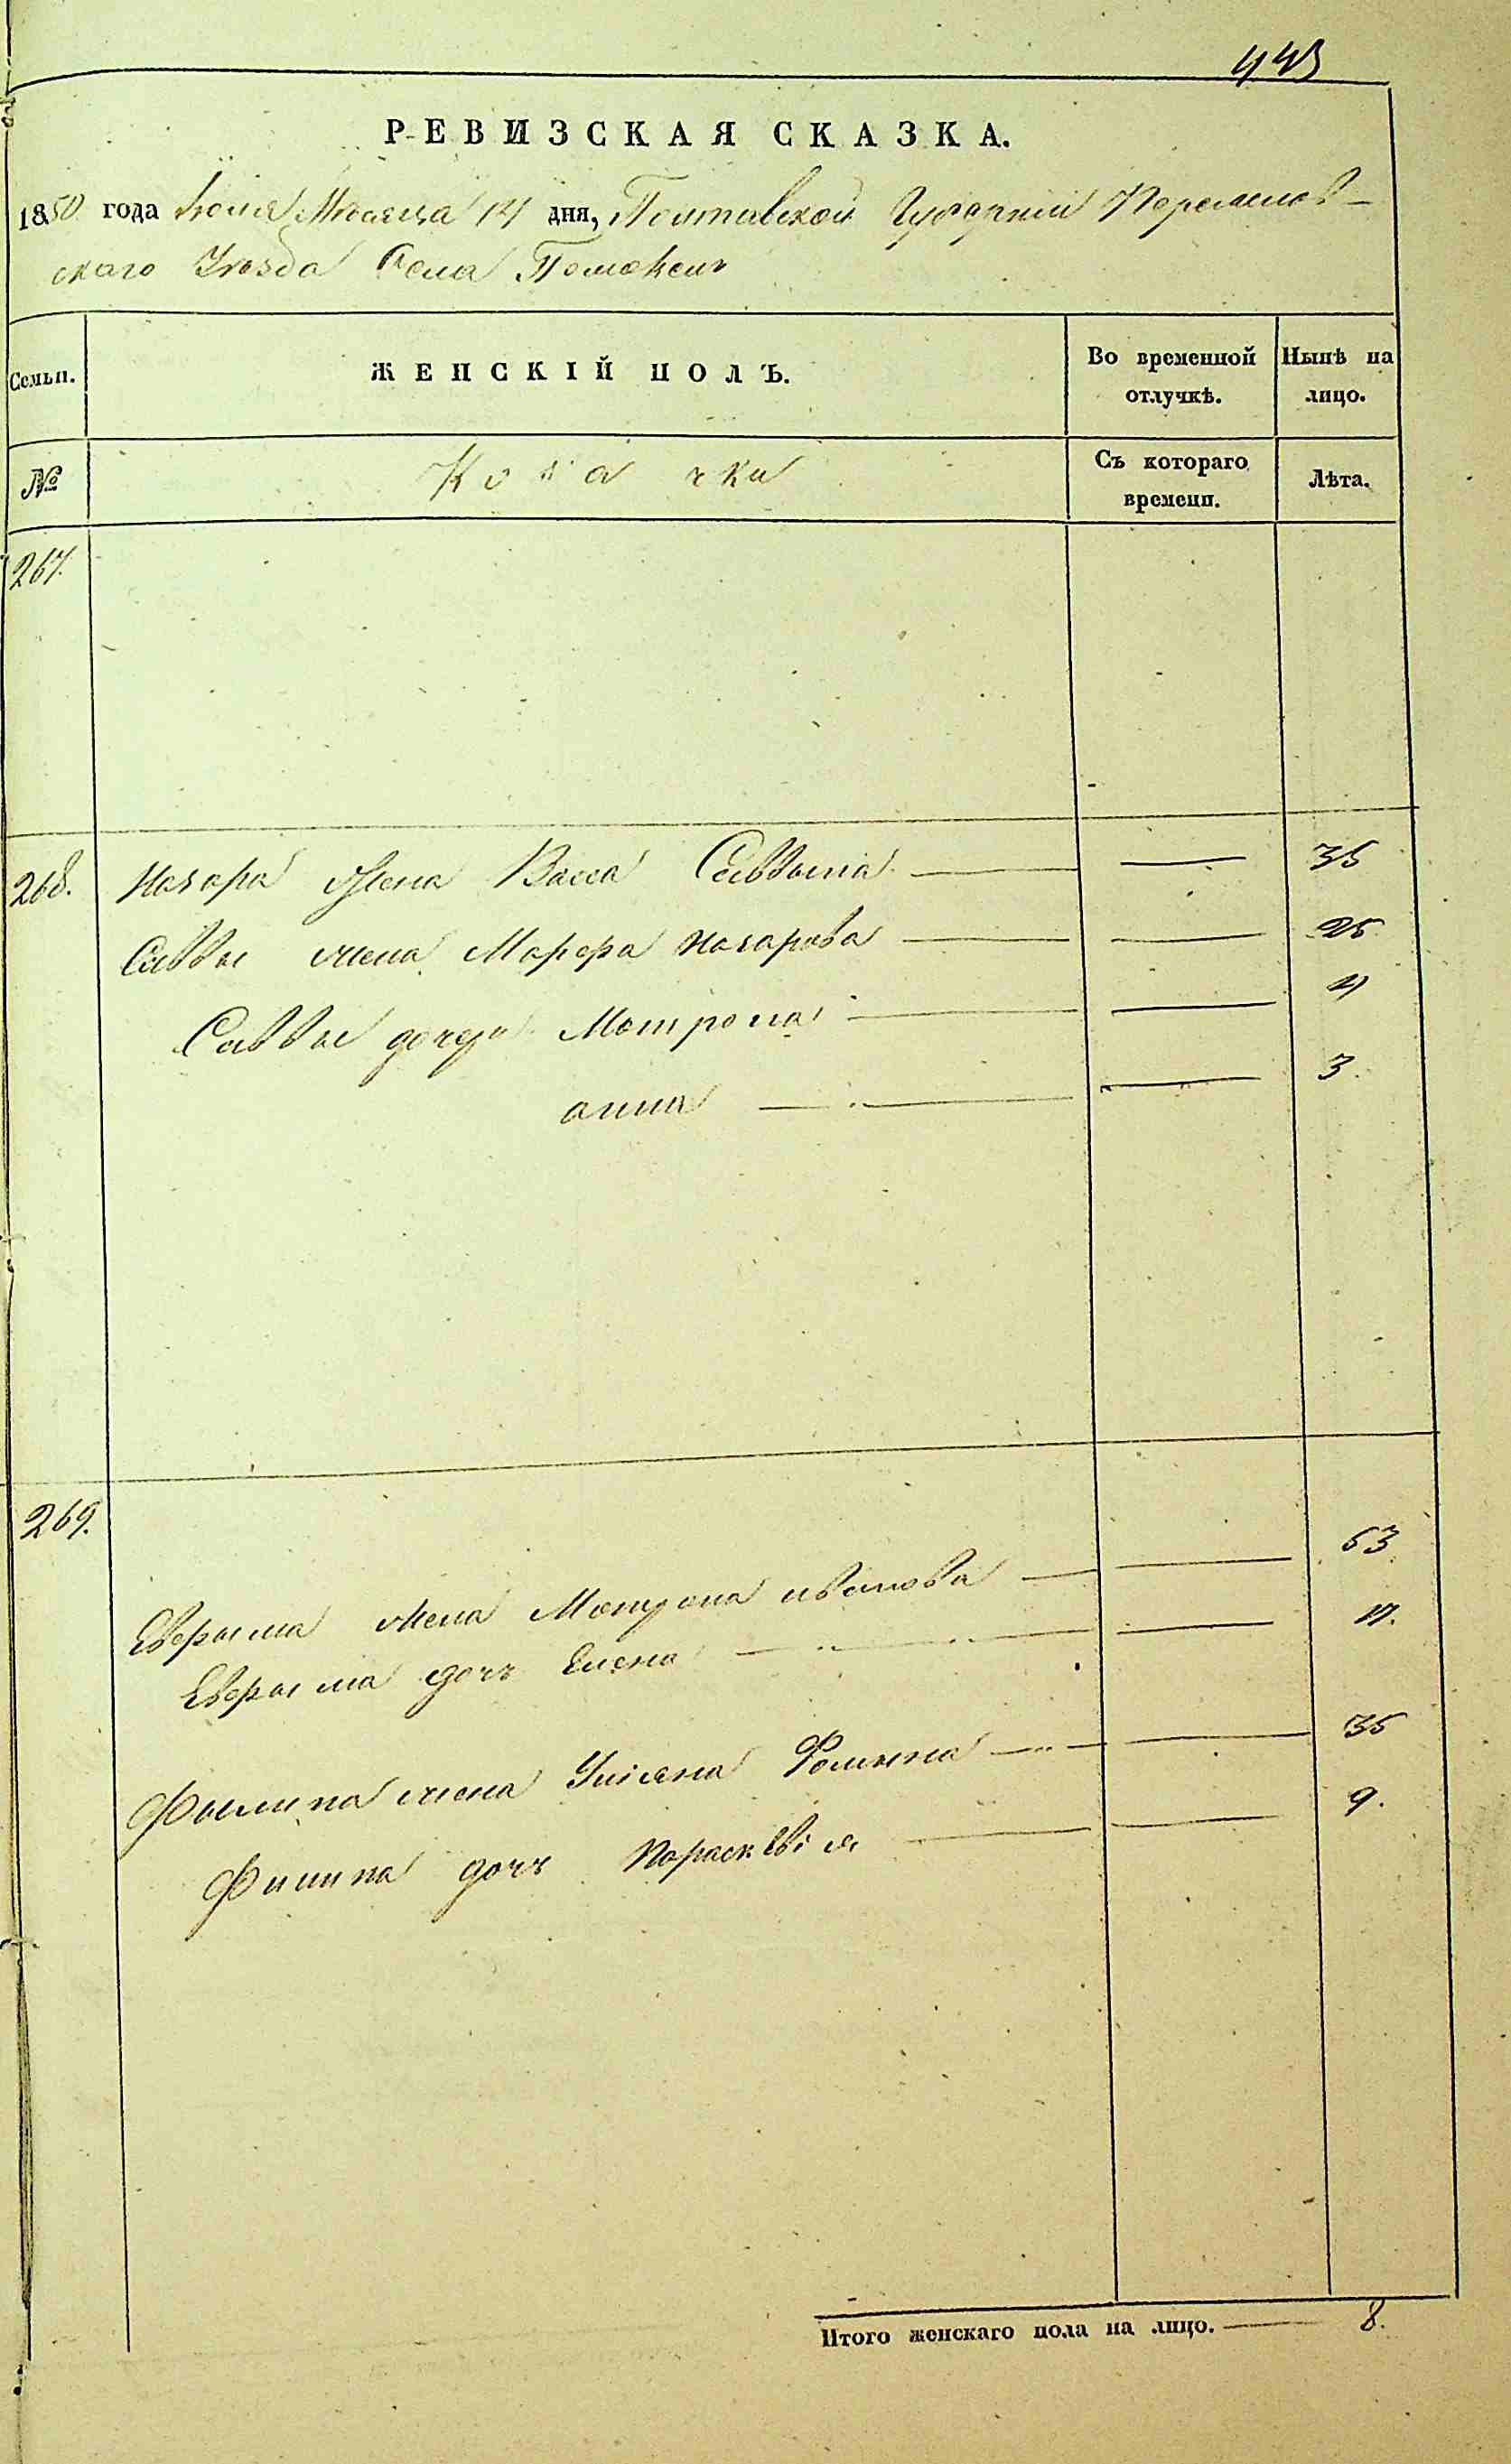 443
РЕВИЗСКАЯ СКАЗКА.
1850 года Июня Месяца 14 дня, Полтавской Губерніи Переяслов-
скаго Уезда Села Помоклеи
Семьи. ЖЕНСКІЙ ПОЛЪ. Во временной отлучкѣ. Нынѣ на лицо.
№ Козачки Съ котораго времени. Лѣта.
267.
268. Назара жена Васса Саввына 35
Саввы жена Марфа Назарова 25
Саввы дочери Матрона 4
анна 3.
269.
жена Матрона иванова 53
дочь Елена 17.
Филипа жена Уліяна Фомина 35
Филипа дочь Параскевія 9.
Итого женскаго пола на лицо. 8.